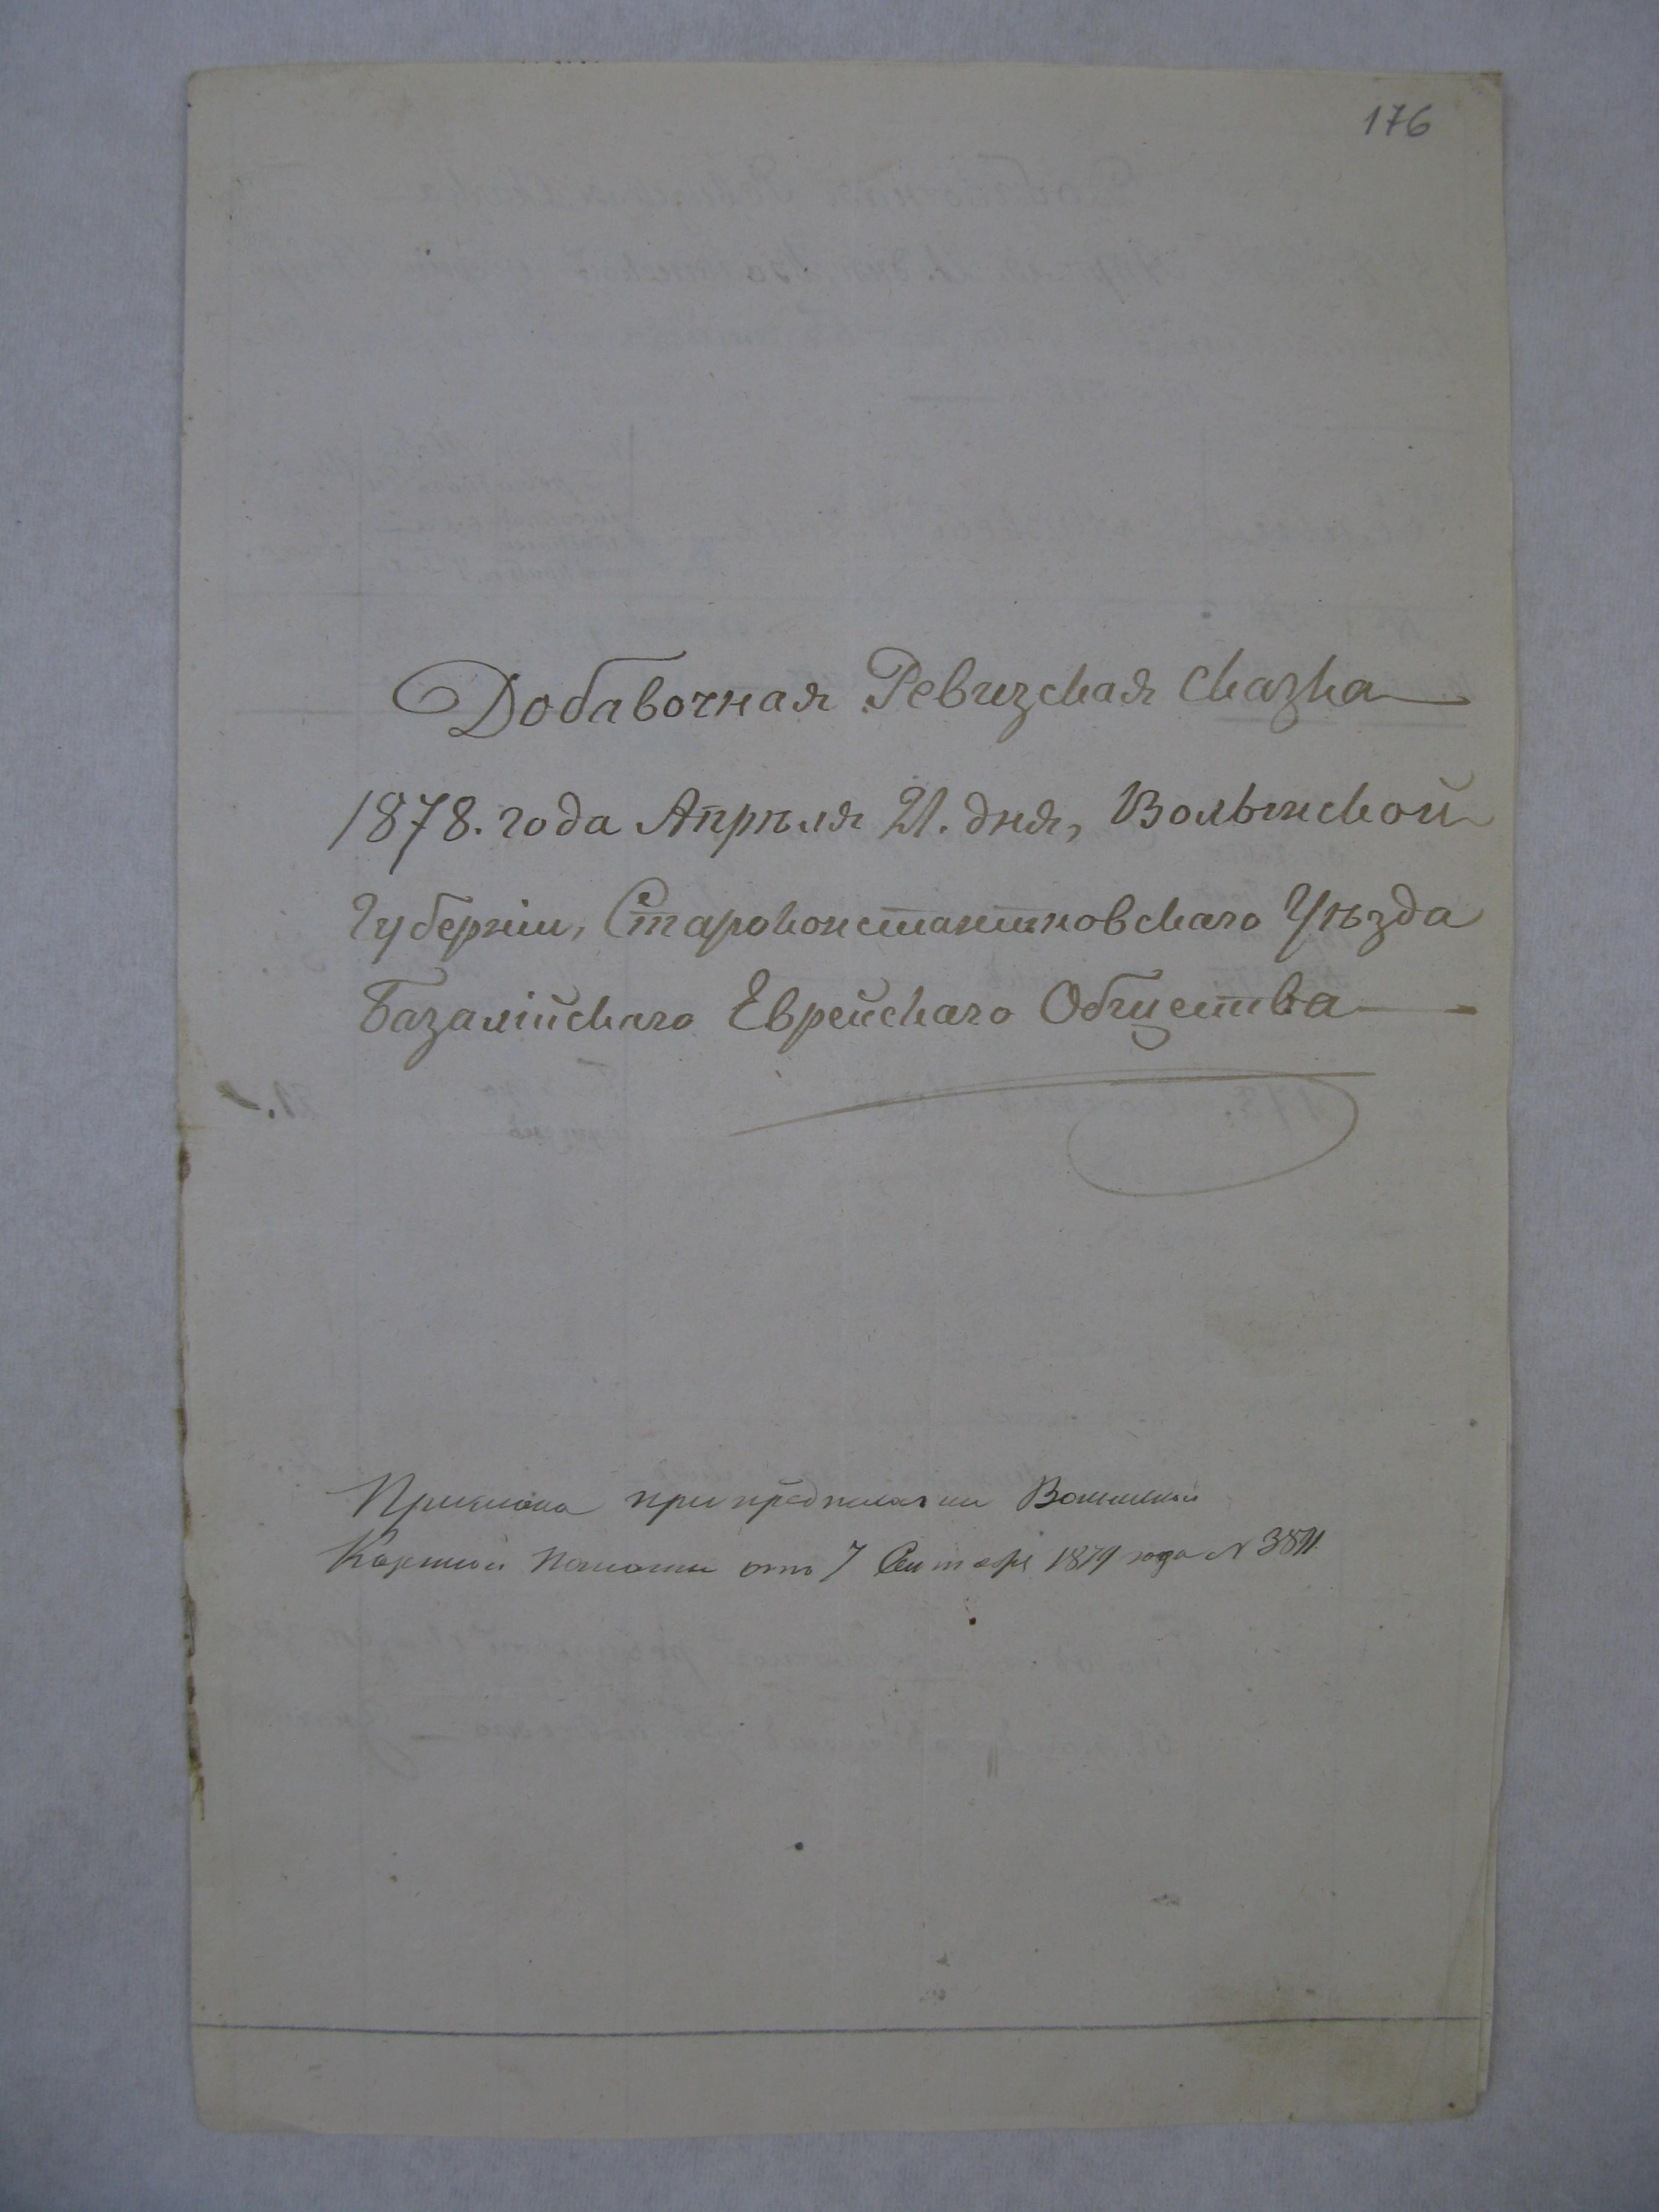 176
Добавочная Ревизская Сказка
1878. года Апрѣля 21. дня, Волынской
Губерніи, Староконстантиновскаго Уѣзда
Базалійскаго Еврейскаго Общества
Прислана при предписаніи Волынской
Казенной Палаты отъ 7 Сентября 1879 года №